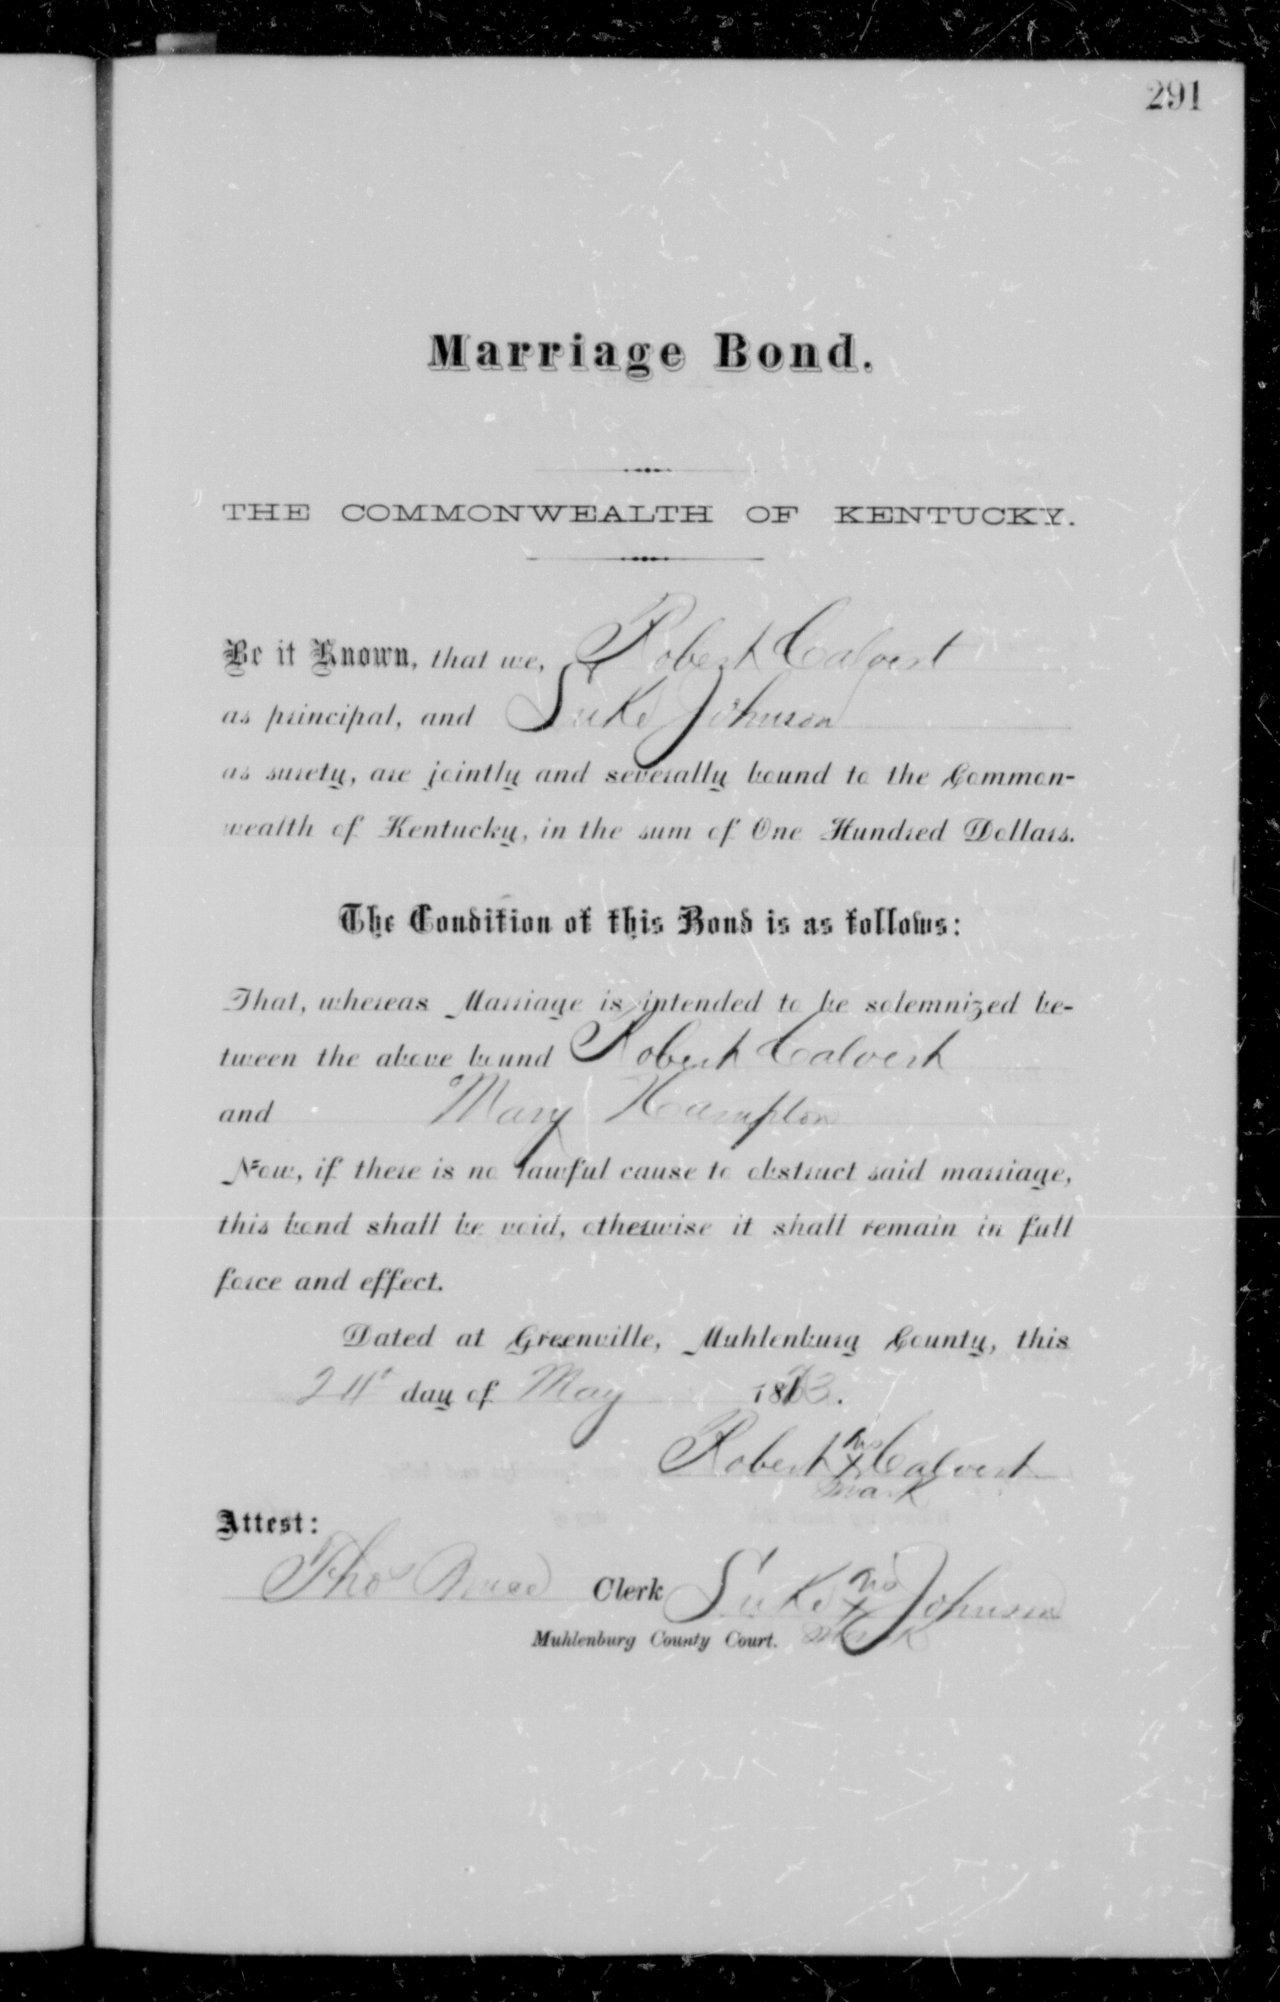 291
Marriage Bond.
THE COMMONWEALTH OF KENTUCKY.
Be it Known, that we, Robert Calvert
as principal, and Luke Johnson
as surety, are jointly and severally bound to the Common-
wealth of Kentucky, in the sum of One Hundred Dollars.
The Condition of this Bond is as follows:
That, whereas Marriage is intended to be solemnized be-
tween the above bound Robert Calvert
and Mary Hampton
Now, if there is no lawful cause to obstruct said marriage,
this bond shall be void, otherwise it shall remain in full
force and effect.
Dated at Greenville, Muhlenburg County, this
day of May 1883.
Robert his x mark Calvert
Attest:
Thos Clerk Luke his x mark Johnson
Muhlenburg County Court.